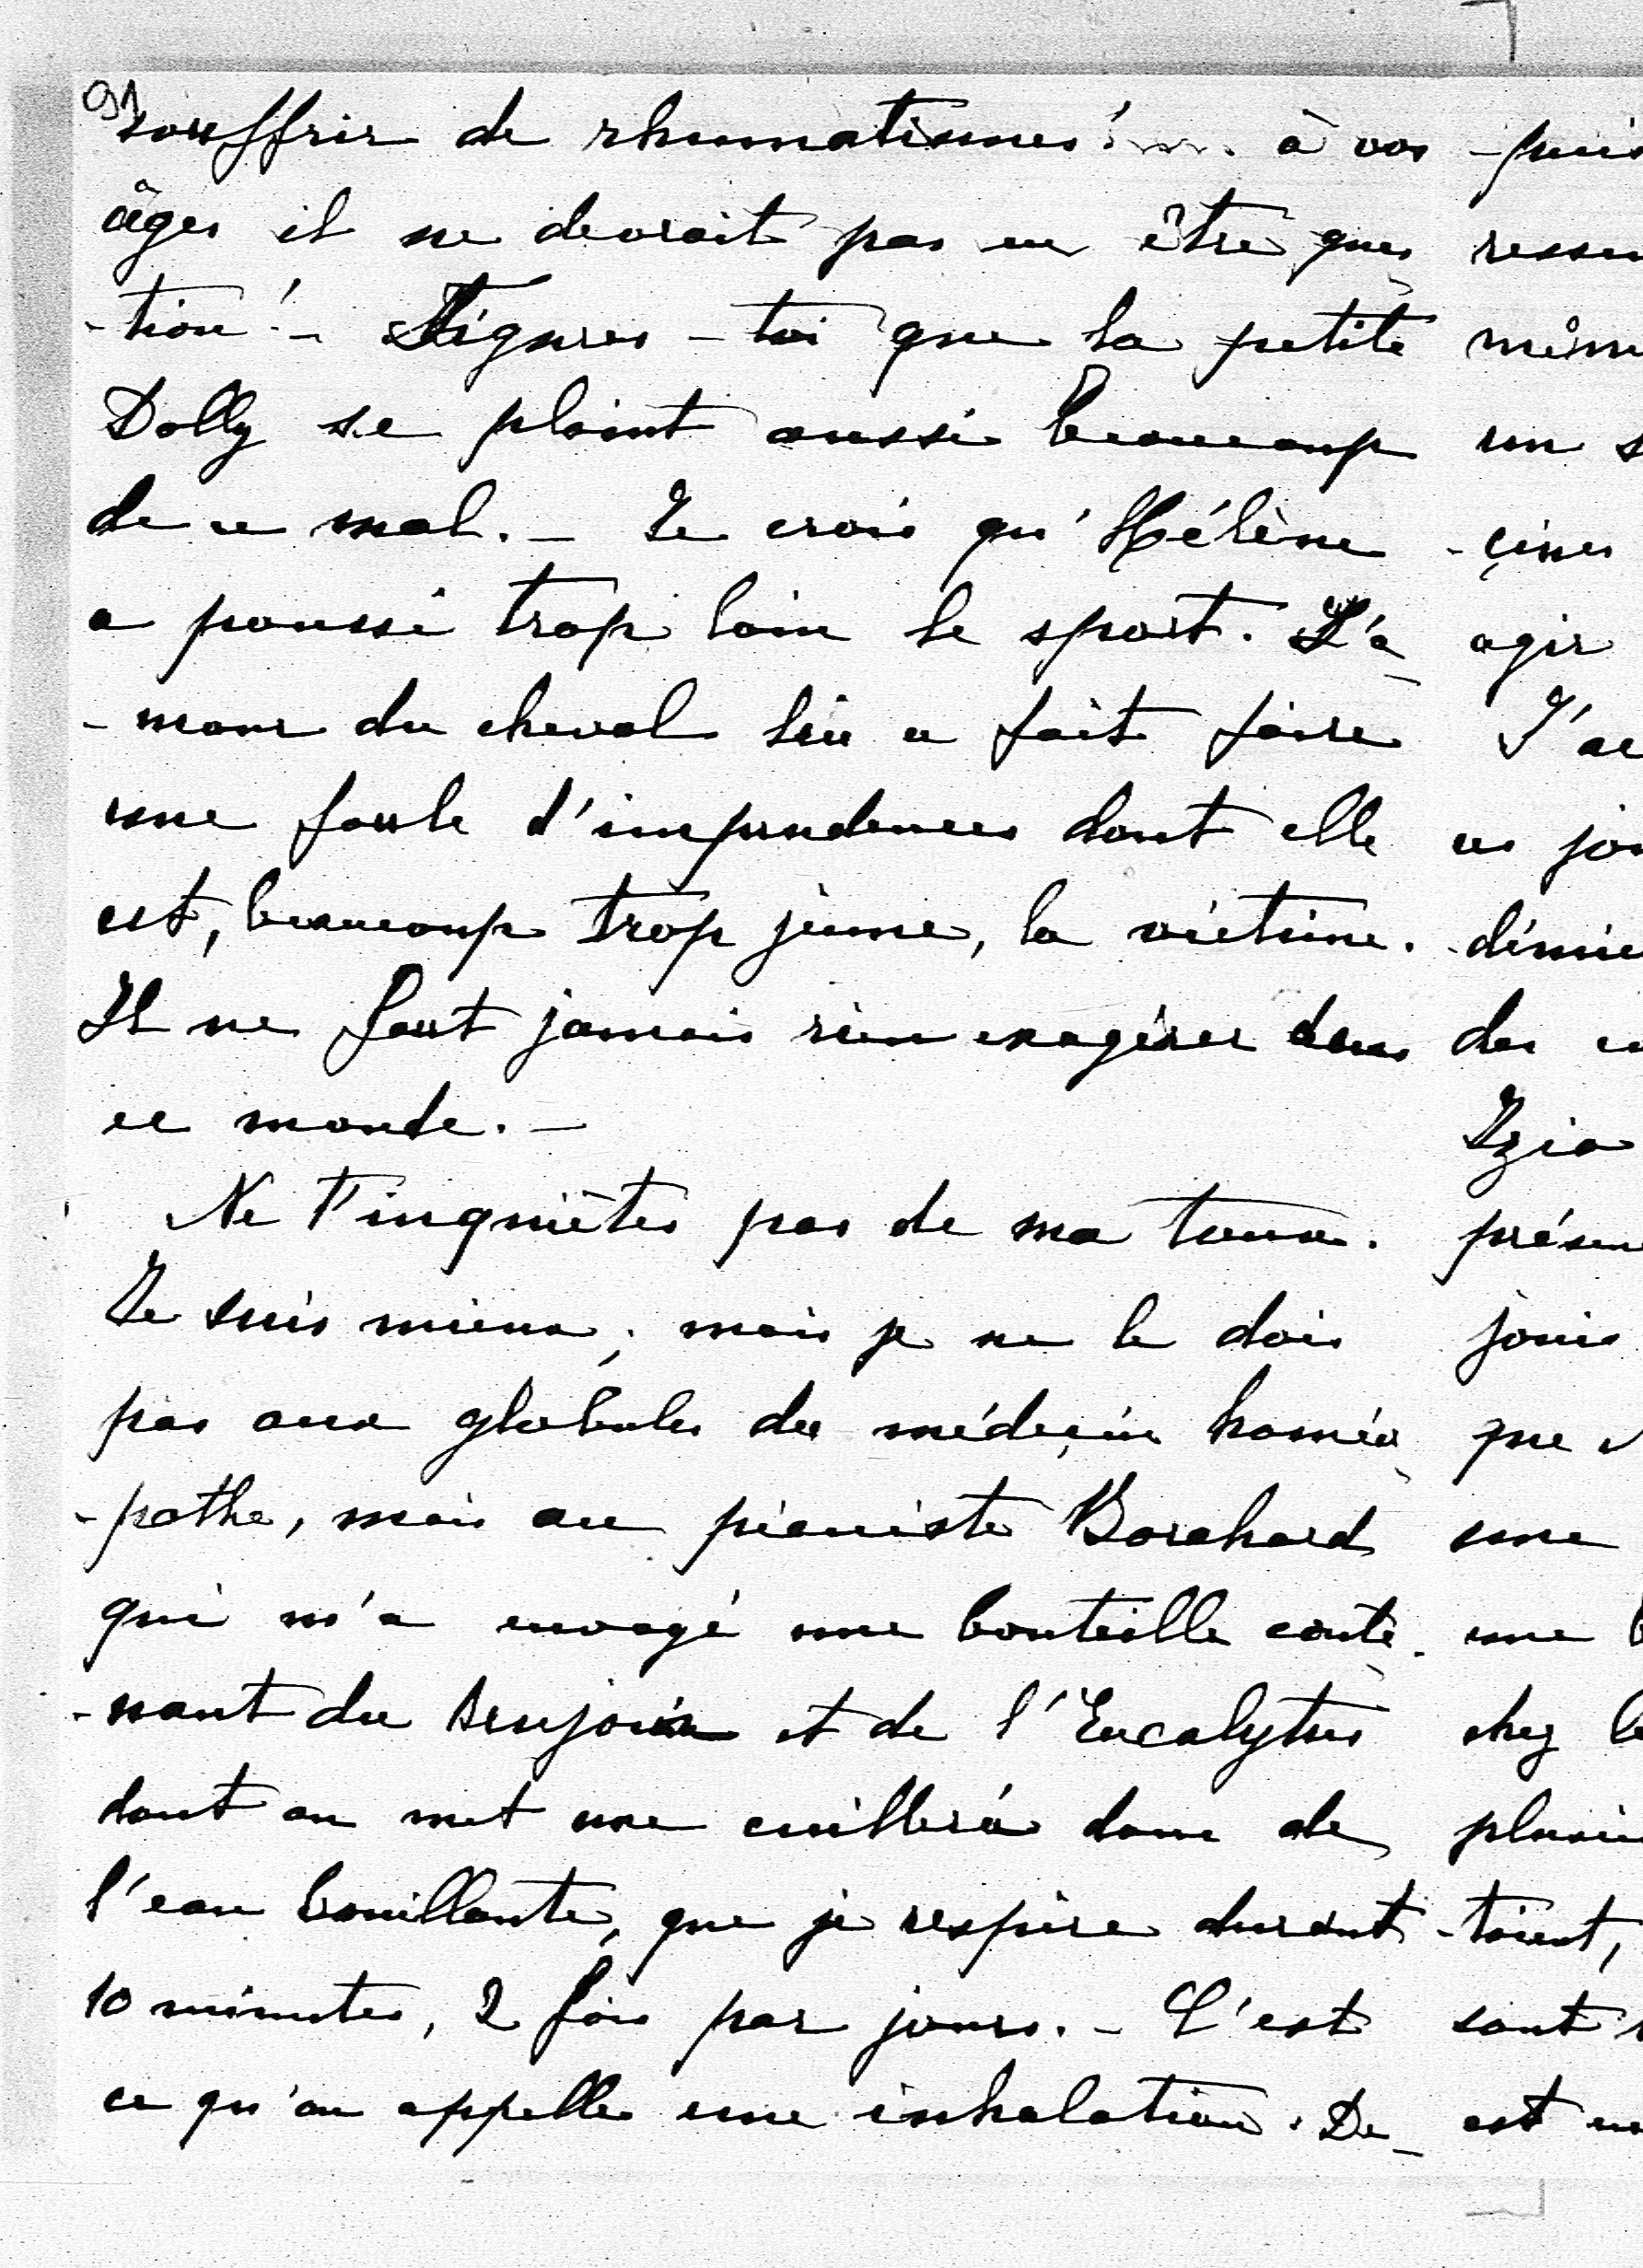 91
souffrir de rhumatismes! à vos
âges il ne devrait pas en être ques
-tion! - Figures-toi que la petite
Dolly se plaint aussi beaucoup
de ce mal. - Je crois qu'Hélène
a poussé trop loin le sport. L'a
-mour du cheval lui a fait faire
une foule d'imprudences dont elle
est, beaucoup trop jeune, la victime.
Il ne faut jamais rien exagérer dans
ce monde. -
Ne t'inquiètes pas de ma toux.
Je suis mieux; mais je ne le dois
pas aux globules du médeçin homéo
-pathe, mais au pianiste Borchard
qui m'a envoyé une bouteille conte
-nant du benjoin et de l'Eucalytus
dont on met une cuillerée dans de
l'eau bouillante, que je respire durant
10 minutes, 2 fois par jours. - C'est
ce qu'on appelle une inhalation. De-
-puis
ressen
même
un s
-çines
agir
J'ai
ces jou
-démie
des
Izia
présen
jouis
que
une
une b
chez le
plusieu
-toient,
sont
est